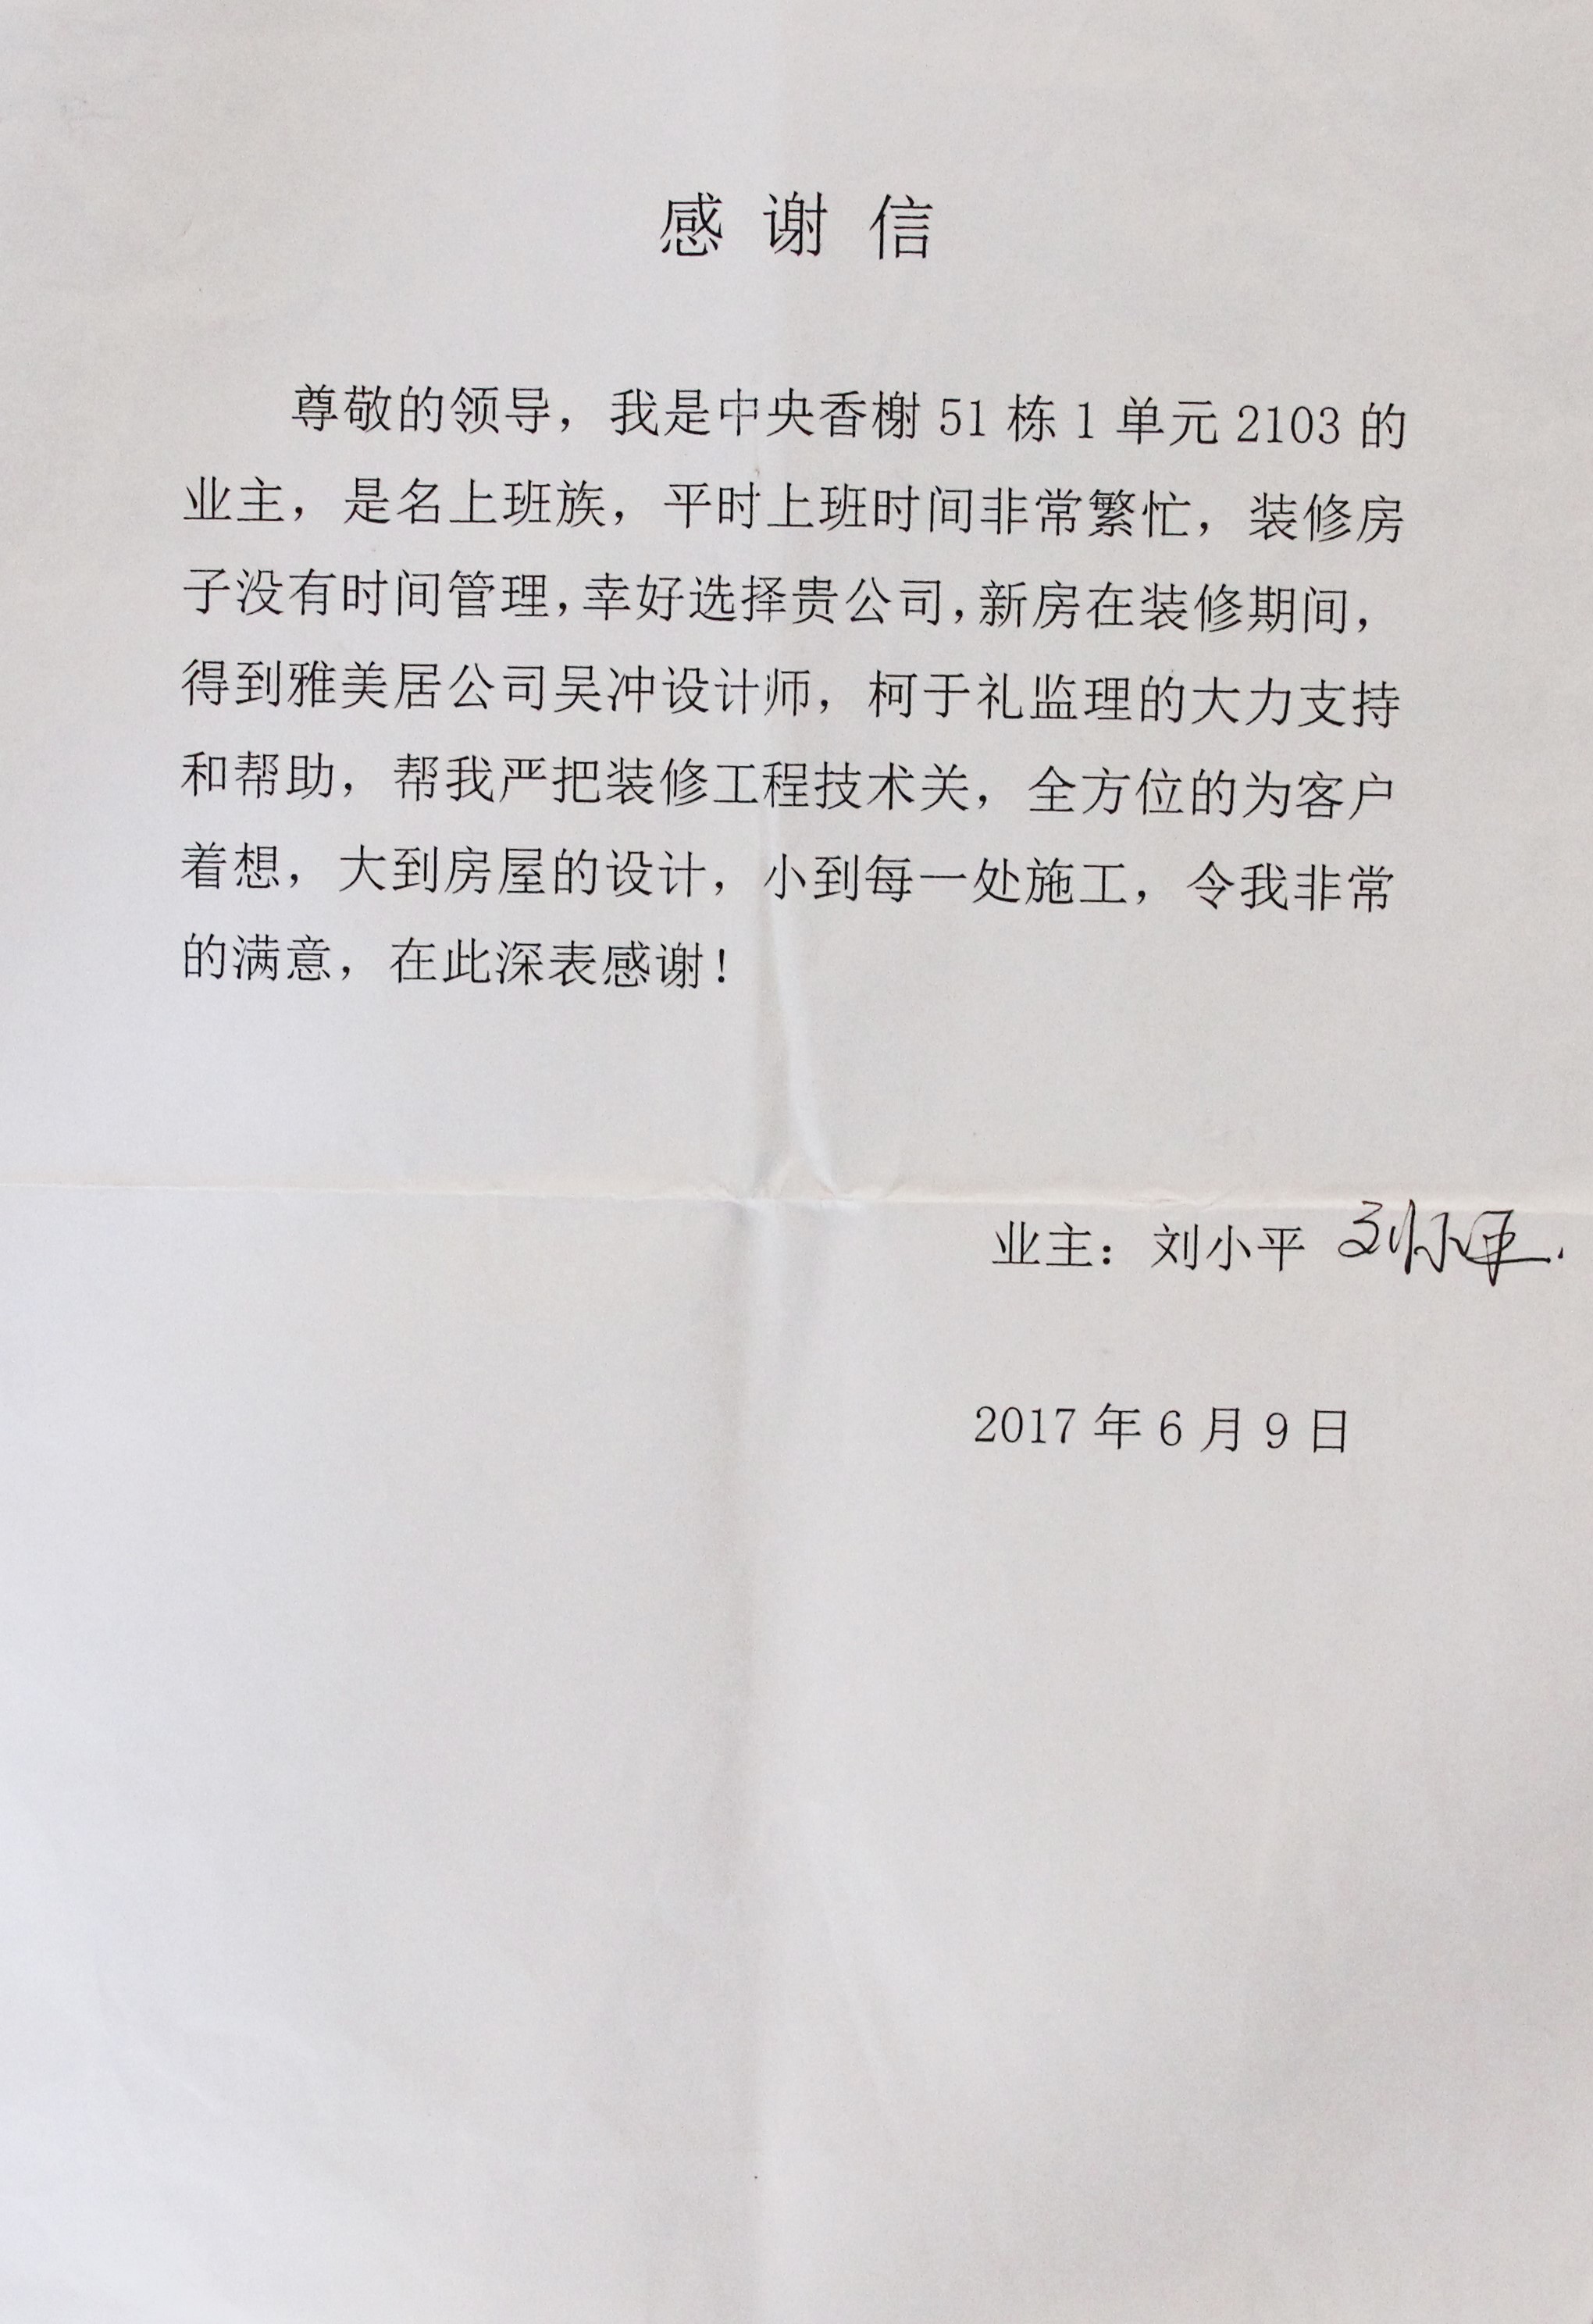 感 谢 信
尊敬的领导，我是中央香榭 51 栋 1 单元 2103 的
业主，是名上班族，平时上班时间非常繁忙，装修房
子没有时间管理，幸好选择贵公司，新房在装修期间，
得到雅美居公司吴冲设计师，柯于礼监理的大力支持
和帮助，帮我严把装修工程技术关，全方位的为客户
着想，大到房屋的设计，小到每一处施工，令我非常
的满意，在此深表感谢！
业主：刘小平 刘小平.
2017 年 6 月 9 日